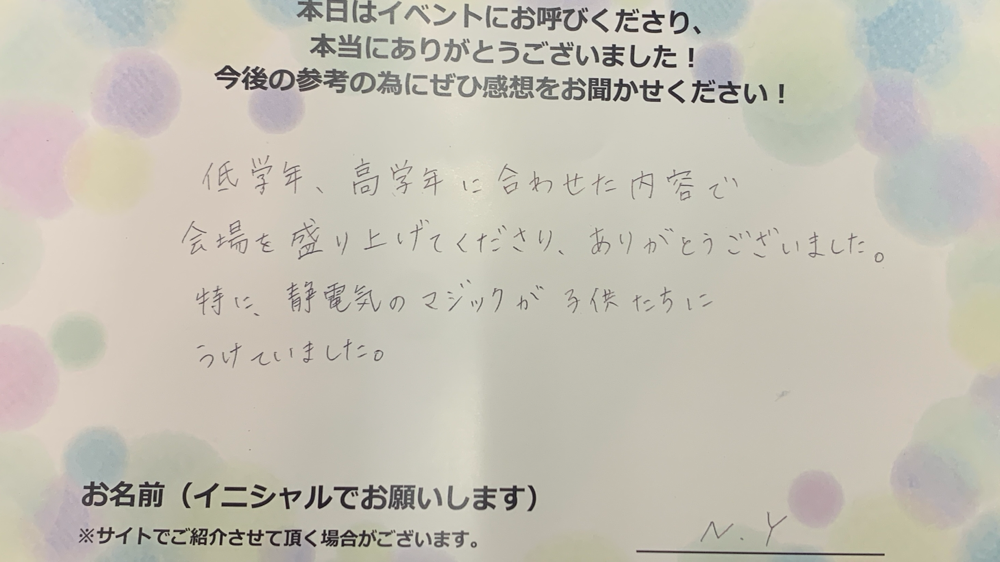 本日はイベントにお呼びくださり、
本当にありがとうございました！
今後の参考の為にぜひ感想をお聞かせください！
低学年、高学年に合わせた内容で
会場を盛り上げてくださり、ありがとうございました。
特に、静電気のマジックが子供たちに
うけていました。
お名前（イニシャルでお願いします）
※サイトでご紹介させて頂く場合がございます。
N.Y